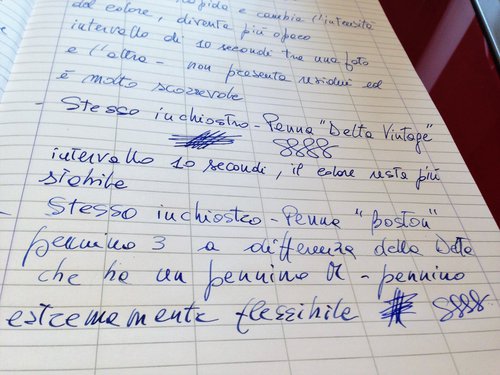 rapida e cambia l'intensità
del colore, diventa più opaco
intervallo di 10 secondi tra una foto
e l'altra - non presenta residui ed
è molto scorrevole
- Stesso inchiostro - Penna "Delta Vintage"
8888
intervallo 10 secondi, il colore resta più
stabile
- Stesso inchiostro - Penna "Boston"
pennino 3 a differenza della Delta
che ha un pennino - pennino
estremamente flessibile 8888